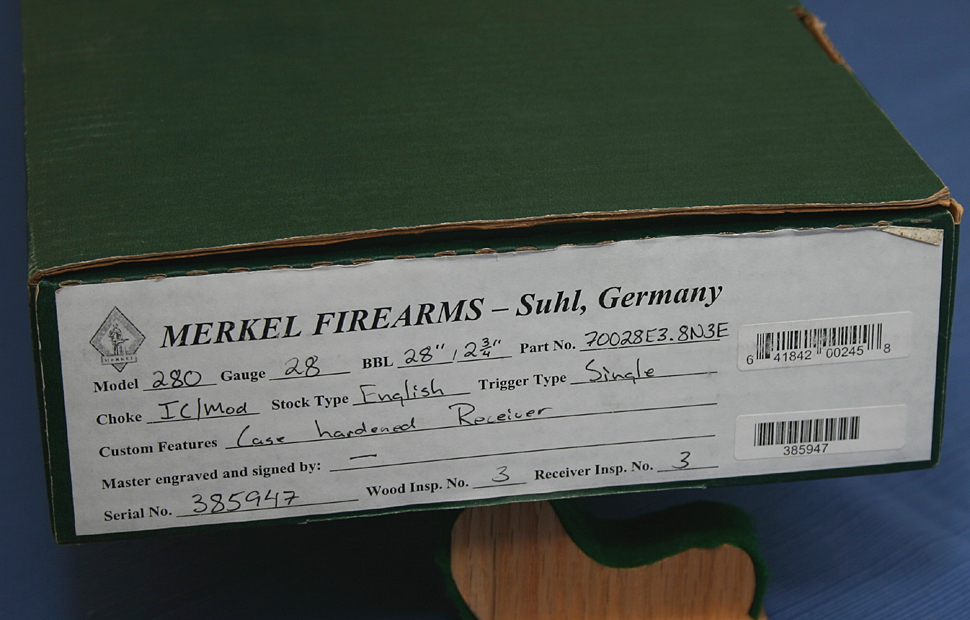 MERKEL FIREARMS – Suhl, Germany
MERKEL
Model 280 Gauge 28 BBL 28", 2 3/4" Part No. 70028E3.8N3E
Choke IC/Mod Stock Type English Trigger Type Single
Custom Features Case hardened Receiver
Master engraved and signed by: —
Serial No. 385947 Wood Insp. No. 3 Receiver Insp. No. 3
6 41842 00245 8
385947